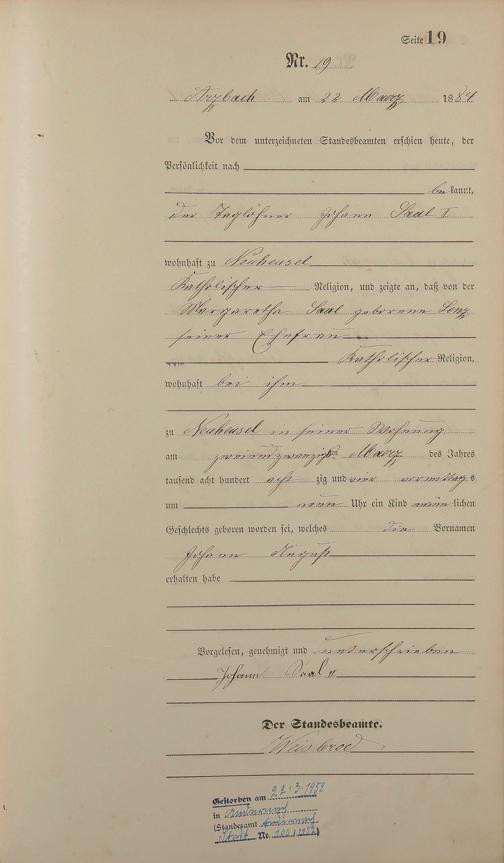 Seite 19
Nr. 19
Arzbach am 22 Maerz 1884
Vor dem unterzeichneten Standesbeamten erschien heute, der
Persönlichkeit nach
bekannt,
der Taglöhner Johann Saal II
wohnhaft zu Neuheusel
Katholischer Religion, und zeigte an, daß von der
Margaretha Saal geborene Lenz
seiner Ehefrau
Katholischer Religion,
wohnhaft bei ihm
zu Neuheusel in seiner Wohnung
am zweiundzwanzigst Maerz des Jahres
tausend acht hundert achtzig und vier vormittags
um neun Uhr ein Kind männlichen
Geschlechts geboren worden sei, welches die Vornamen
Johann August
erhalten habe
Vorgelesen, genehmigt und unterschrieben
Johann Saal II
Der Standesbeamte.
Weisbrod
Gestorben am 3.1958
in Andernach
(Standesamt Andernach
Stadt Nr.